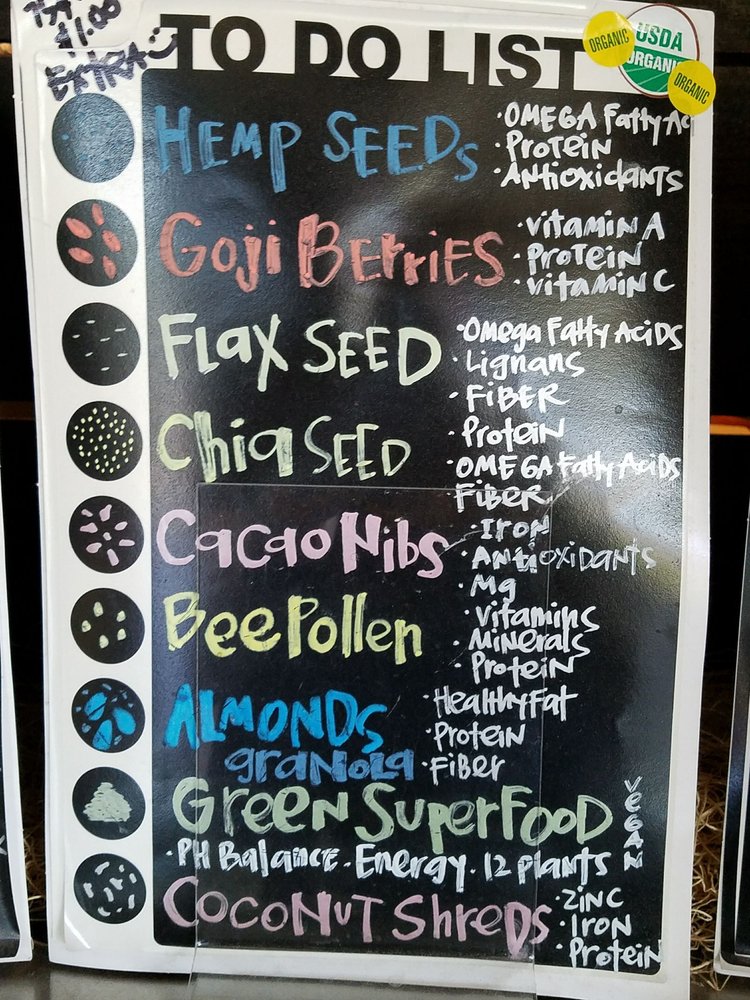 $1.00
EXTRA
TO DO LIST
ORGANIC
USDA
ORGANIC
ORGANIC
HEMP SEEDS
·OMEGA FattyAc
·PROTEIN
·Antioxidants
Goji BERRIES
·vitamin A
·PROTEIN
·vitamin C
FLAX SEED
·Omega Fatty Acids
·Lignans
·FIBER
Chia SEED
·Protein
·OMEGA Fatty Acids
FIBER
Cacao Nibs
·Iron
·Antioxidants
·Mg
Bee Pollen
·Vitamins
·Minerals
·Protein
ALMONDS
granola
·HealthyFat
·Protein
·Fiber
Green SuperFood
VEGAN
·PH Balance·Energy·12 plants
COCONUT Shreds
·Zinc
·Iron
·Protein